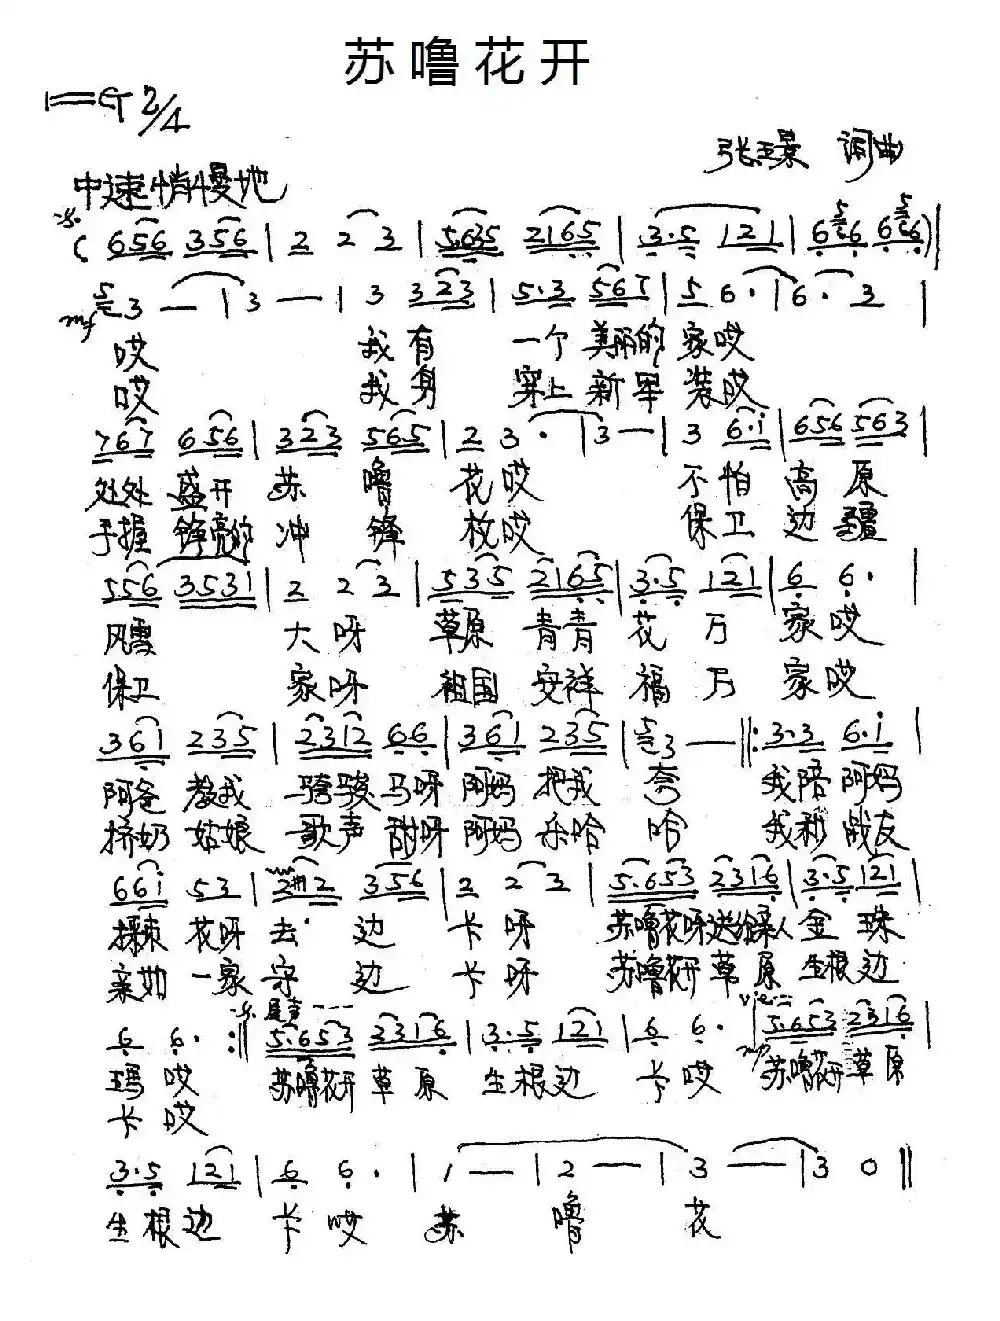 苏噜花开
1=G 2/4
张玉景 词曲
中速悄慢地
( 656 356 | 2 2 3 | 5635 2165 | 3·5 121 | 6 6 6 6 ) |
mf 5 3 — | 3 — | 3 323 | 5·3 567 | 5 6· | 6· 3 |
哎 我有 一个 美丽的 家哎
哎 我身 穿上 新军 装哎
767 656 | 323 565 | 2 3· | 3 — | 3 6·i | 656 563 |
处处 盛开 苏 噜 花哎 不怕 高原
手握 铮亮的 冲 锋 枚哎 保卫 边疆
556 3531 | 2 2 3 | 535 2165 | 3·5 121 | 6 6· |
风雪 大呀 草原 青青 花万 家哎
保卫 家呀 祖国 安祥 福万 家哎
361 235 | 2312 66 | 361 235 | 5 3 — ‖: 3·3 6·i |
阿爸 教我 骑骏马呀 阿妈 把我 夸 我陪阿妈
挤奶 姑娘 歌声 甜呀 阿妈 乐哈 哈 我和战友
66i 53 | 2 2 356 | 2 2 3 | 5·653 2316 | 3·5 121 |
花呀 去 边 卡呀 苏噜花呀送给亲人 金 珠
亲如 一家 守 边 卡呀 苏噜花开 草原 生根边
6 6· :‖ 5·653 2316 | 3·5 121 | 6 6· | 5·653 2316 |
玛哎 苏噜花开 草原 生根边 卡哎 mp 苏噜花开 草原
卡哎
3·5 121 | 6 6· | 1 — | 2 — | 3 — | 3 0 ‖
生根边 卡哎 苏 噜 花